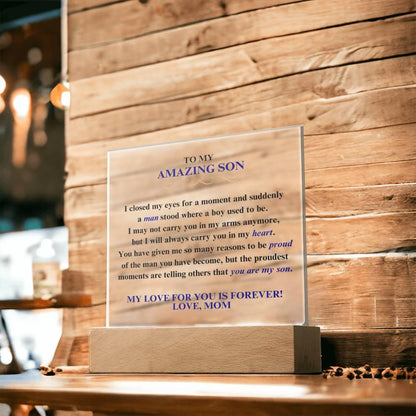 TO MY
AMAZING SON
I closed my eyes for a moment and suddenly
a man stood where a boy used to be.
I may not carry you in my arms anymore,
but I will always carry you in my heart.
You have given me so many reasons to be proud
of the man you have become, but the proudest
moments are telling others that you are my son.
MY LOVE FOR YOU IS FOREVER!
LOVE, MOM